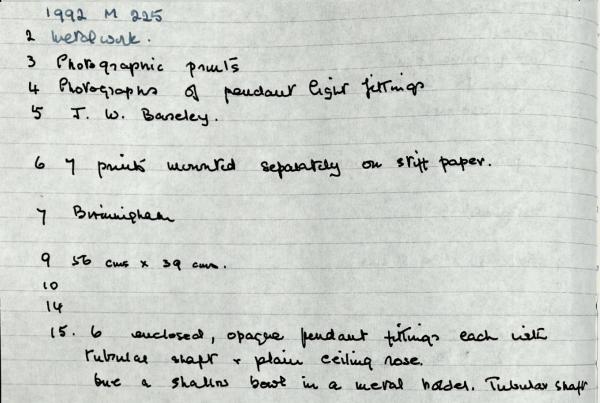 1992 M 225
2 Metalwork.
3 Photographic prints
4 Photographs of pendant light fittings
5 J. W. Baseley.
6 7 prints mounted separately on stiff paper.
7 Birmingham
9 56 cms x 39 cms.
10
14
15. 6 enclosed, opaque pendant fittings each with
tubular shaft + plain ceiling rose.
one a shallow bowl in a metal holder. Tubular shaft